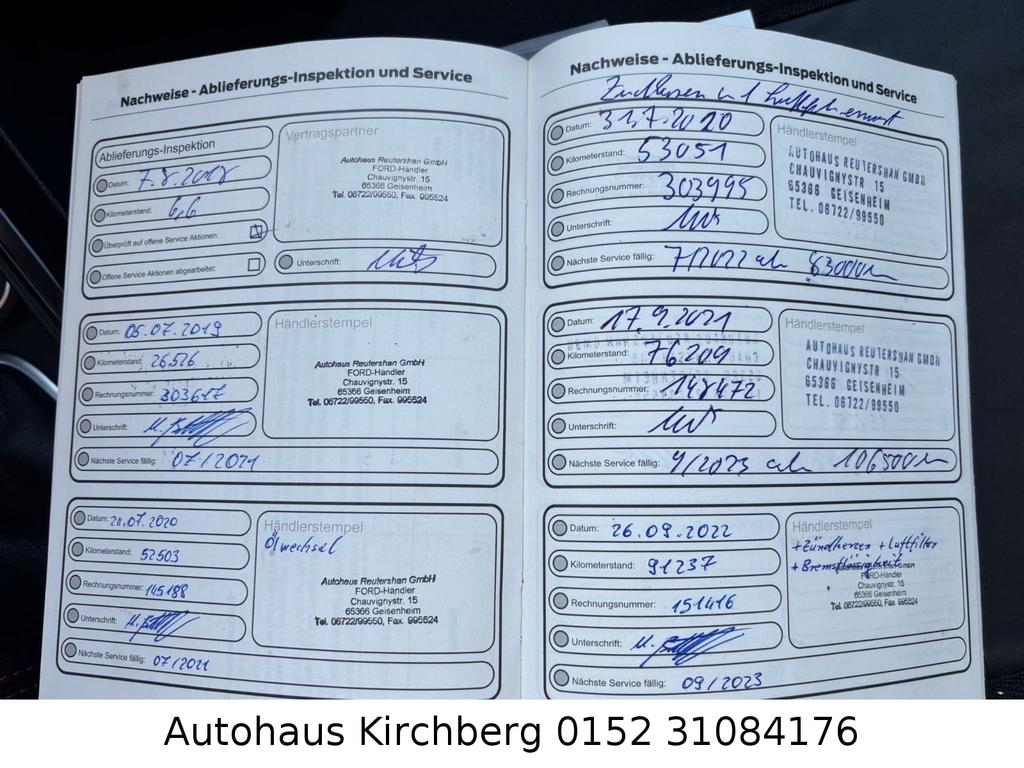 Nachweise - Ablieferungs-Inspektion und Service
Ablieferungs-Inspektion
Datum: 7.8.2018
Kilometerstand: 6,6
Überprüft auf offene Service Aktionen:
Offene Service Aktionen abgearbeitet:
Vertragspartner
Autohaus Reutershan GmbH
FORD-Händler
Chauvignystr. 15
65366 Geisenheim
Tel. 06722/99550, Fax. 995524
Unterschrift:
Datum: 05.07.2019
Kilometerstand: 26526
Rechnungsnummer: 303617
Unterschrift:
Nächste Service fällig: 07/2021
Händlerstempel
Autohaus Reutershan GmbH
FORD-Händler
Chauvignystr. 15
65366 Geisenheim
Tel. 06722/99550, Fax. 995524
Datum: 21.07.2020
Kilometerstand: 52503
Rechnungsnummer: 145188
Unterschrift:
Nächste Service fällig: 07/2021
Händlerstempel
Ölwechsel
Autohaus Reutershan GmbH
FORD-Händler
Chauvignystr. 15
65366 Geisenheim
Tel. 06722/99550, Fax. 995524
Nachweise - Ablieferungs-Inspektion und Service
Datum: 31.7.2020
Kilometerstand: 53051
Rechnungsnummer: 303995
Unterschrift:
Nächste Service fällig:
Händlerstempel
AUTOHAUS REUTERSHAN GMBH
CHAUVIGNYSTR 15
65366 GEISENHEIM
TEL. 06722/99550
Datum: 17.9.2021
Kilometerstand: 76209
Rechnungsnummer: 148472
Unterschrift:
Nächste Service fällig: 9/2023 106500km
Händlerstempel
AUTOHAUS REUTERSHAN GMBH
CHAUVIGNYSTR 15
65366 GEISENHEIM
TEL. 06722/99550
Datum: 26.09.2022
Kilometerstand: 91237
Rechnungsnummer: 151416
Unterschrift:
Nächste Service fällig: 09/2023
Händlerstempel
+Zündkerzen +Luftfilter
+Bremsflüssigkeit
FORD-Händler
Chauvignystr. 15
65366 Geisenheim
Tel. 06722/99550, Fax. 995524
Autohaus Kirchberg 0152 31084176